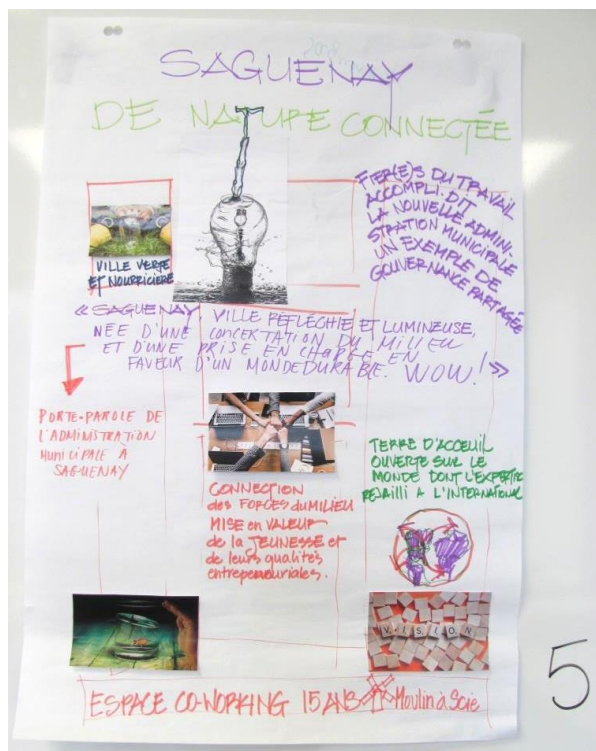 SAGUENAY
DE NATURE CONNECTÉE
FIER(E)S DU TRAVAIL
ACCOMPLI. DIT
LA NOUVELLE ADMINI-
STRATION MUNICIPALE
UN EXEMPLE DE
GOUVERNANCE PARTAGÉE
VILLE VERTE
ET NOURRICIÈRE
« SAGUENAY VILLE RÉFLÉCHIE ET LUMINEUSE,
NÉE D'UNE CONCERTATION DU MILIEU
ET D'UNE PRISE EN CHARGE EN
FAVEUR D'UN MONDE DURABLE. WOW! »
PORTE-PAROLE DE
L'ADMINISTRATION
MUNICIPALE À
SAGUENAY
CONNECTION
des FORCES du MILIEU
MISE en VALEUR
de la JEUNESSE et
de leurs qualités
entrepreneuriales.
TERRE D'ACCEUIL
OUVERTE SUR LE
MONDE DONT L'EXPERTISE
REJAILLI A L'INTERNATIONAL
VISION
ESPACE CO-WORKING 15 ANS Moulin à Scie
5